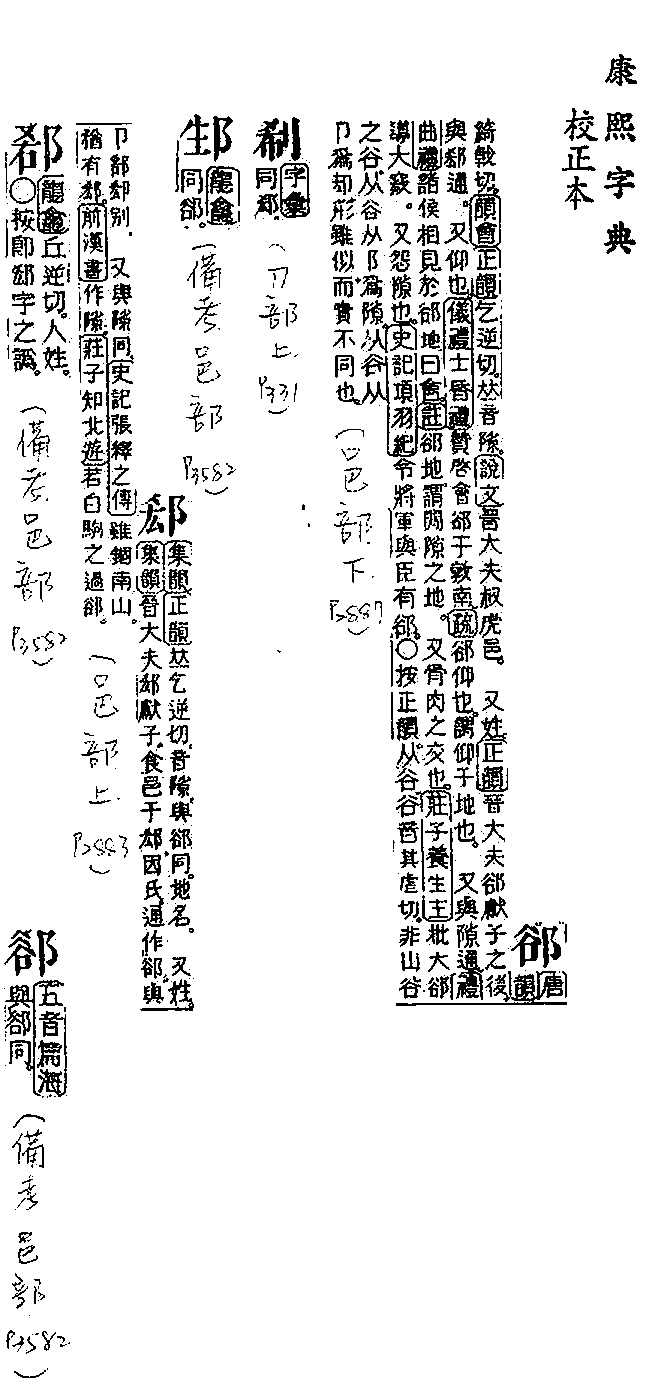 康熙字典
校正本
郤
唐韻
綺戟切。韻會正韻乞逆切。𠀤音隙。說文晉大夫叔虎邑。又姓。正韻晉大夫郤獻子之後。
與郄通。又仰也。儀禮士昏禮贊啓會郤于敦南。疏郤仰也。謂仰于地也。又與隙通。禮
曲禮諸侯相見於郤地曰會。註郤地謂閒隙之地。又骨肉之交也。莊子養生主批大郤
導大窾。又怨隙也。史記項羽紀令將軍與臣有郤。○按正韻从谷谷音其虐切。非山谷
之谷从谷从阝爲隙从谷从
卩爲却形雖似而實不同也。
(邑部下
P2887)
字彙
同郄。
(刀部上
P331)
龍龕
同郤。
(備考邑部
P3582)
郄
集韻正韻𠀤乞逆切。音隙。與郤同。地名。又姓。
集韻晉大夫郄獻子。食邑于郄。因氏。通作郤。與
卩部郄別。又與隙同。史記張釋之傳雖錮南山。
猶有郄。前漢書作隙。莊子知北遊若白駒之過郤。
(邑部上
P2883)
龍龕丘逆切。人姓。
○按卽郄字之譌。
(備考邑部
P3582)
五音篇海
與郤同。
(備考邑部
P3582)